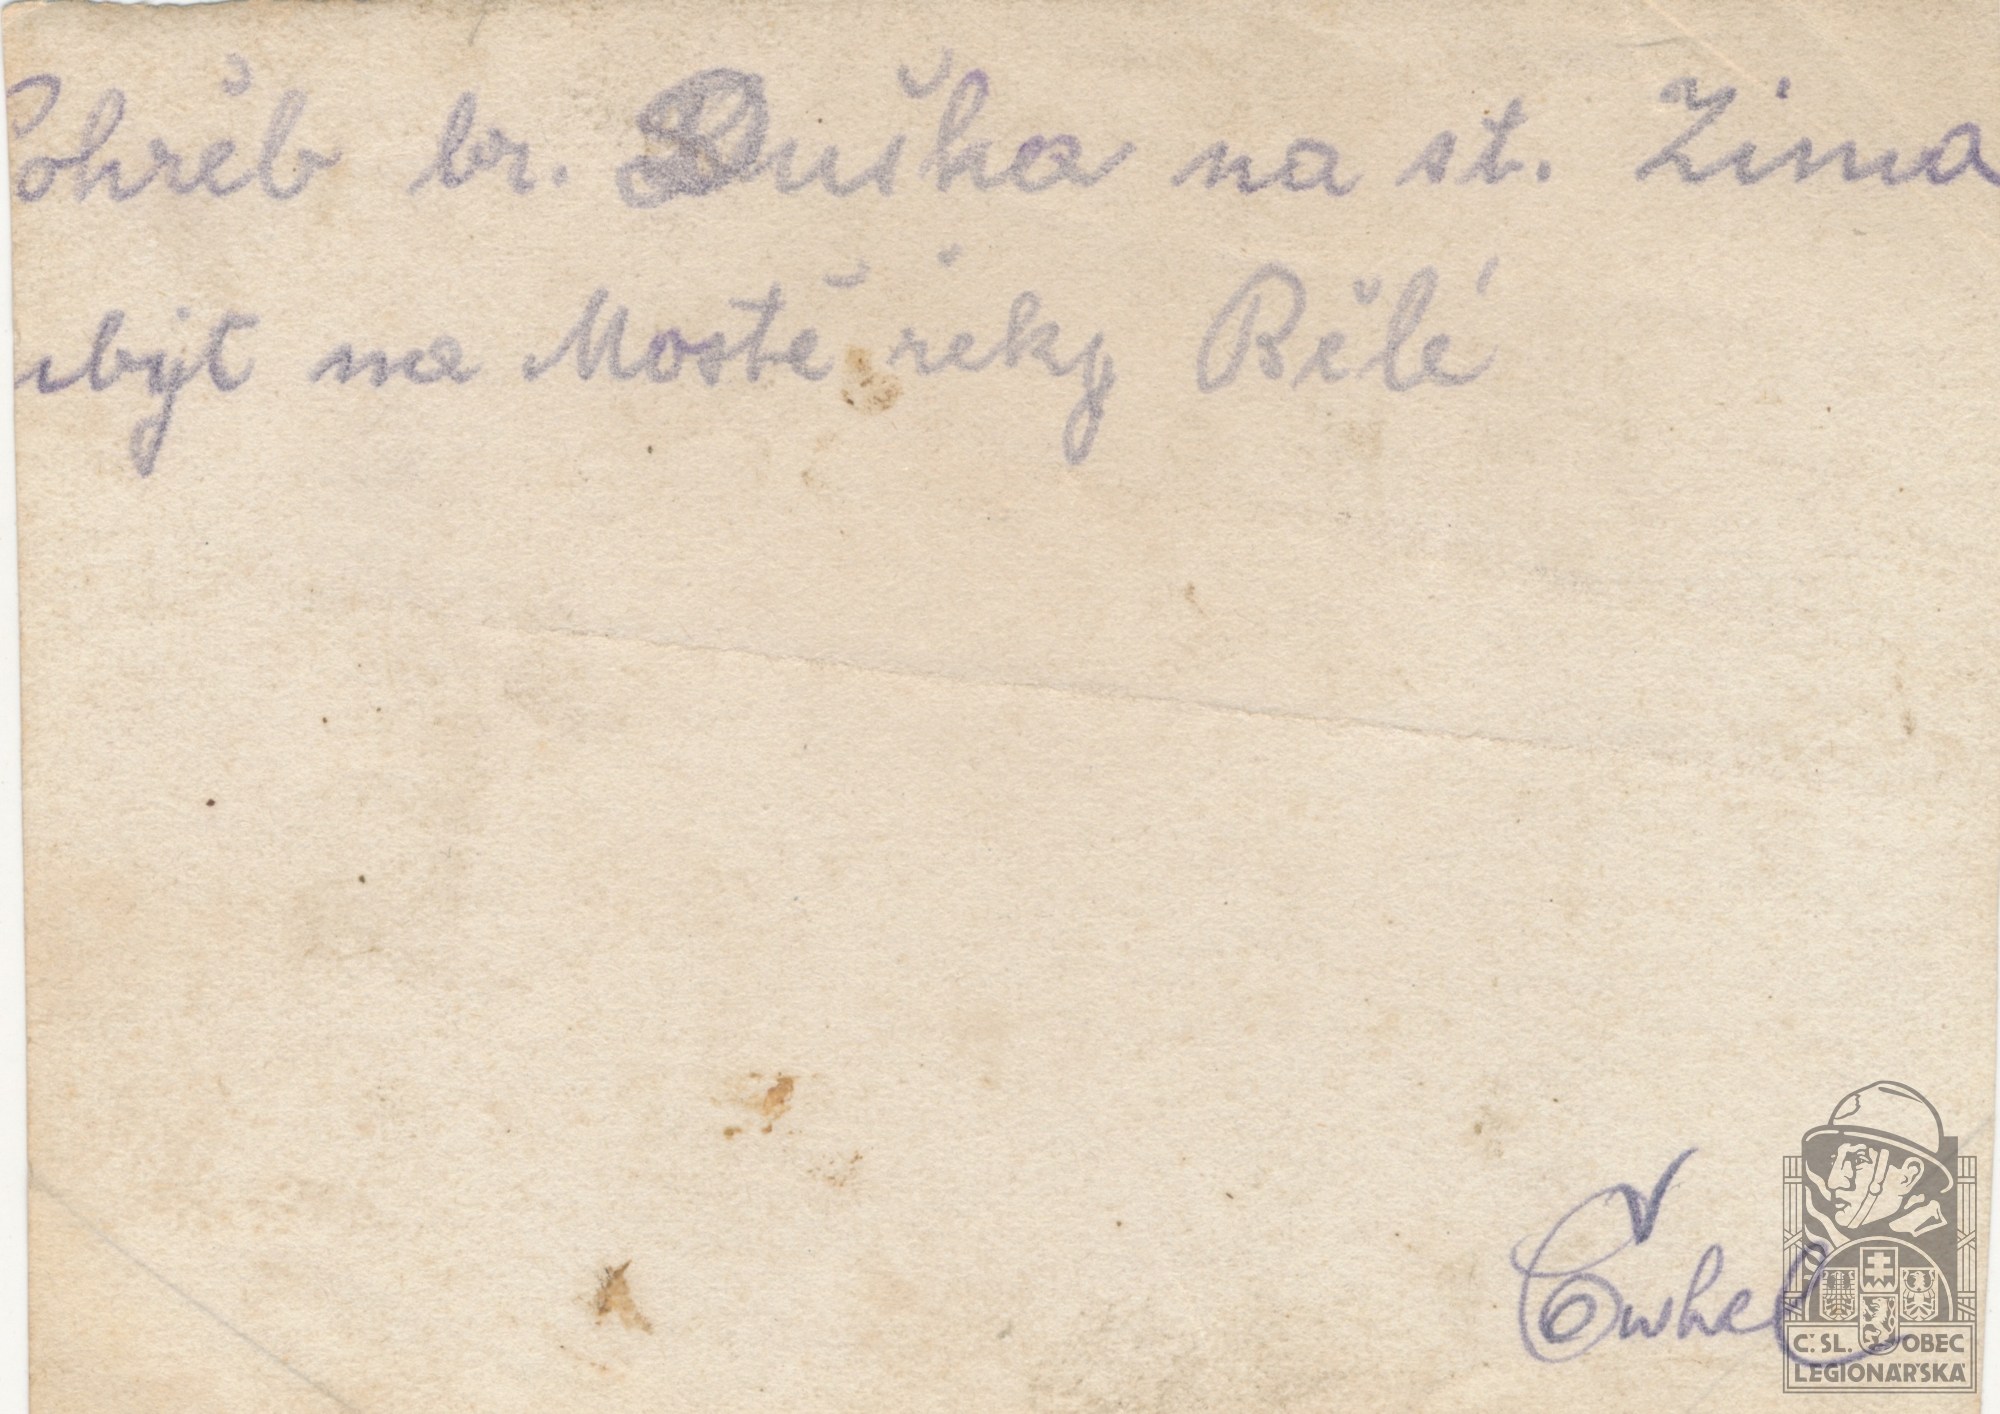 Pohřeb br. Duška na st. Zima
ubyt na Mostě řeky Bělé
C. SL. OBEC
LEGIONÁŘSKÁ